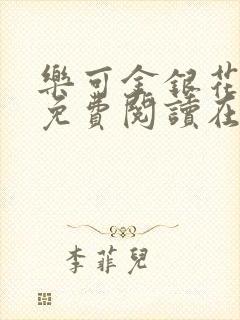 樂可金銀花
免費閱讀在
李菲兒